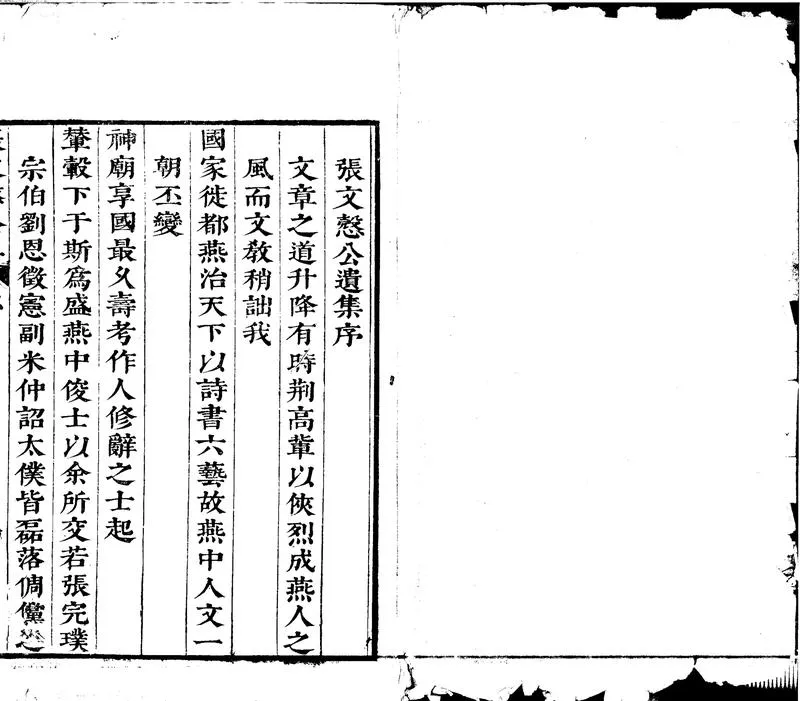 張文慤公遺集序
文章之道升降有時荆髙軰以俠烈成燕人之
風而文敎稍詘我
國家徙都燕治天下以詩書六藝故燕中人文一
朝丕變
神廟享國最久壽考作人修辭之士起
輦轂下于斯爲盛燕中俊士以余所交若張完璞
宗伯劉恩徵憲副米仲詔太僕皆磊落倜儻